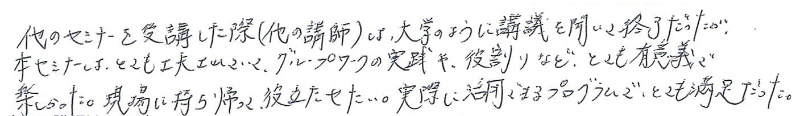 他のセミナーを受講した際(他の講師)は、大学のように講議を聞いて終了だったが、
本セミナーは、とても工夫されていて、グループワークの実践や、役割りなど、とても有意義で
楽しかった。現場に持ち帰って、役立たせたい。実際に活用できるプログラムで、とても満足だった。